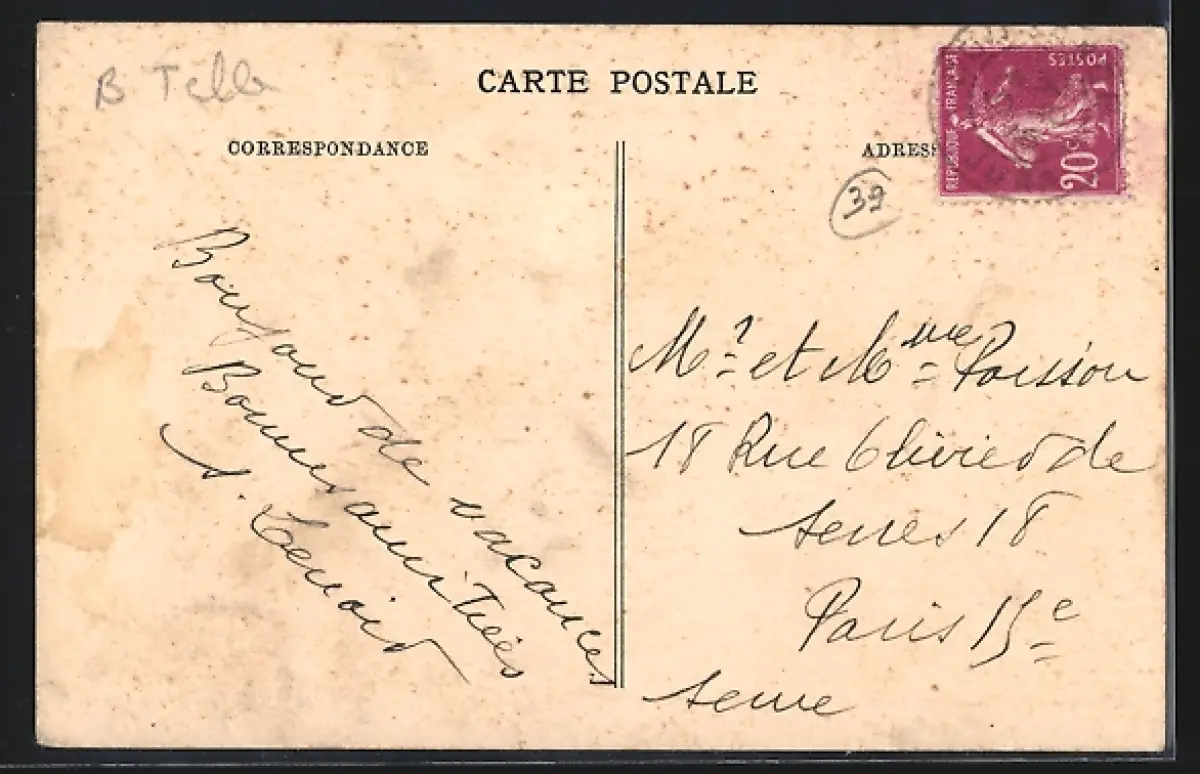 B Telle
CARTE POSTALE
CORRESPONDANCE
ADRESS
REPUBLIQUE FRANÇAISE
POSTES
20 c
39
Bonjour de vacances
Bonnes amitiés
S. Lenoir
Mr. et Mme Poisson
18 Rue Olivier de
serres 18
Paris 15e
Seine